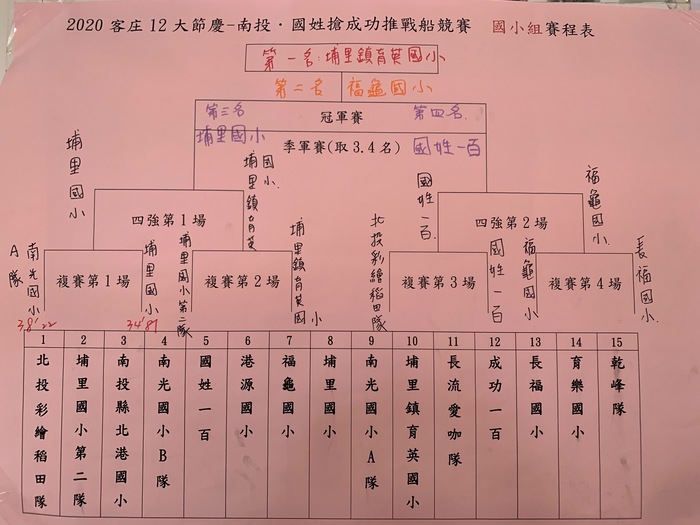 2020 客庄 12 大節慶-南投・國姓搶成功推戰船競賽 國小組賽程表
第一名:埔里鎮育英國小
第二名 福龜國小
第三名 埔里國小
冠軍賽
第四名 國姓一百
季軍賽(取 3.4 名)
埔里國小
四強第 1 場
埔里鎮育英國小
國姓一百
四強第 2 場
福龜國小
南光國小A隊
複賽第 1 場
埔里國小
埔里國小第二隊
複賽第 2 場
埔里鎮育英國小
北投彩繪稻田隊
複賽第 3 場
國姓一百
福龜國小
複賽第 4 場
長福國小
38"22
34"81
1 北投彩繪稻田隊
2 埔里國小第二隊
3 南投縣北港國小
4 南光國小B隊
5 國姓一百
6 港源國小
7 福龜國小
8 埔里國小
9 南光國小A隊
10 埔里鎮育英國小
11 長流愛咖隊
12 成功一百
13 長福國小
14 育樂國小
15 乾峰隊